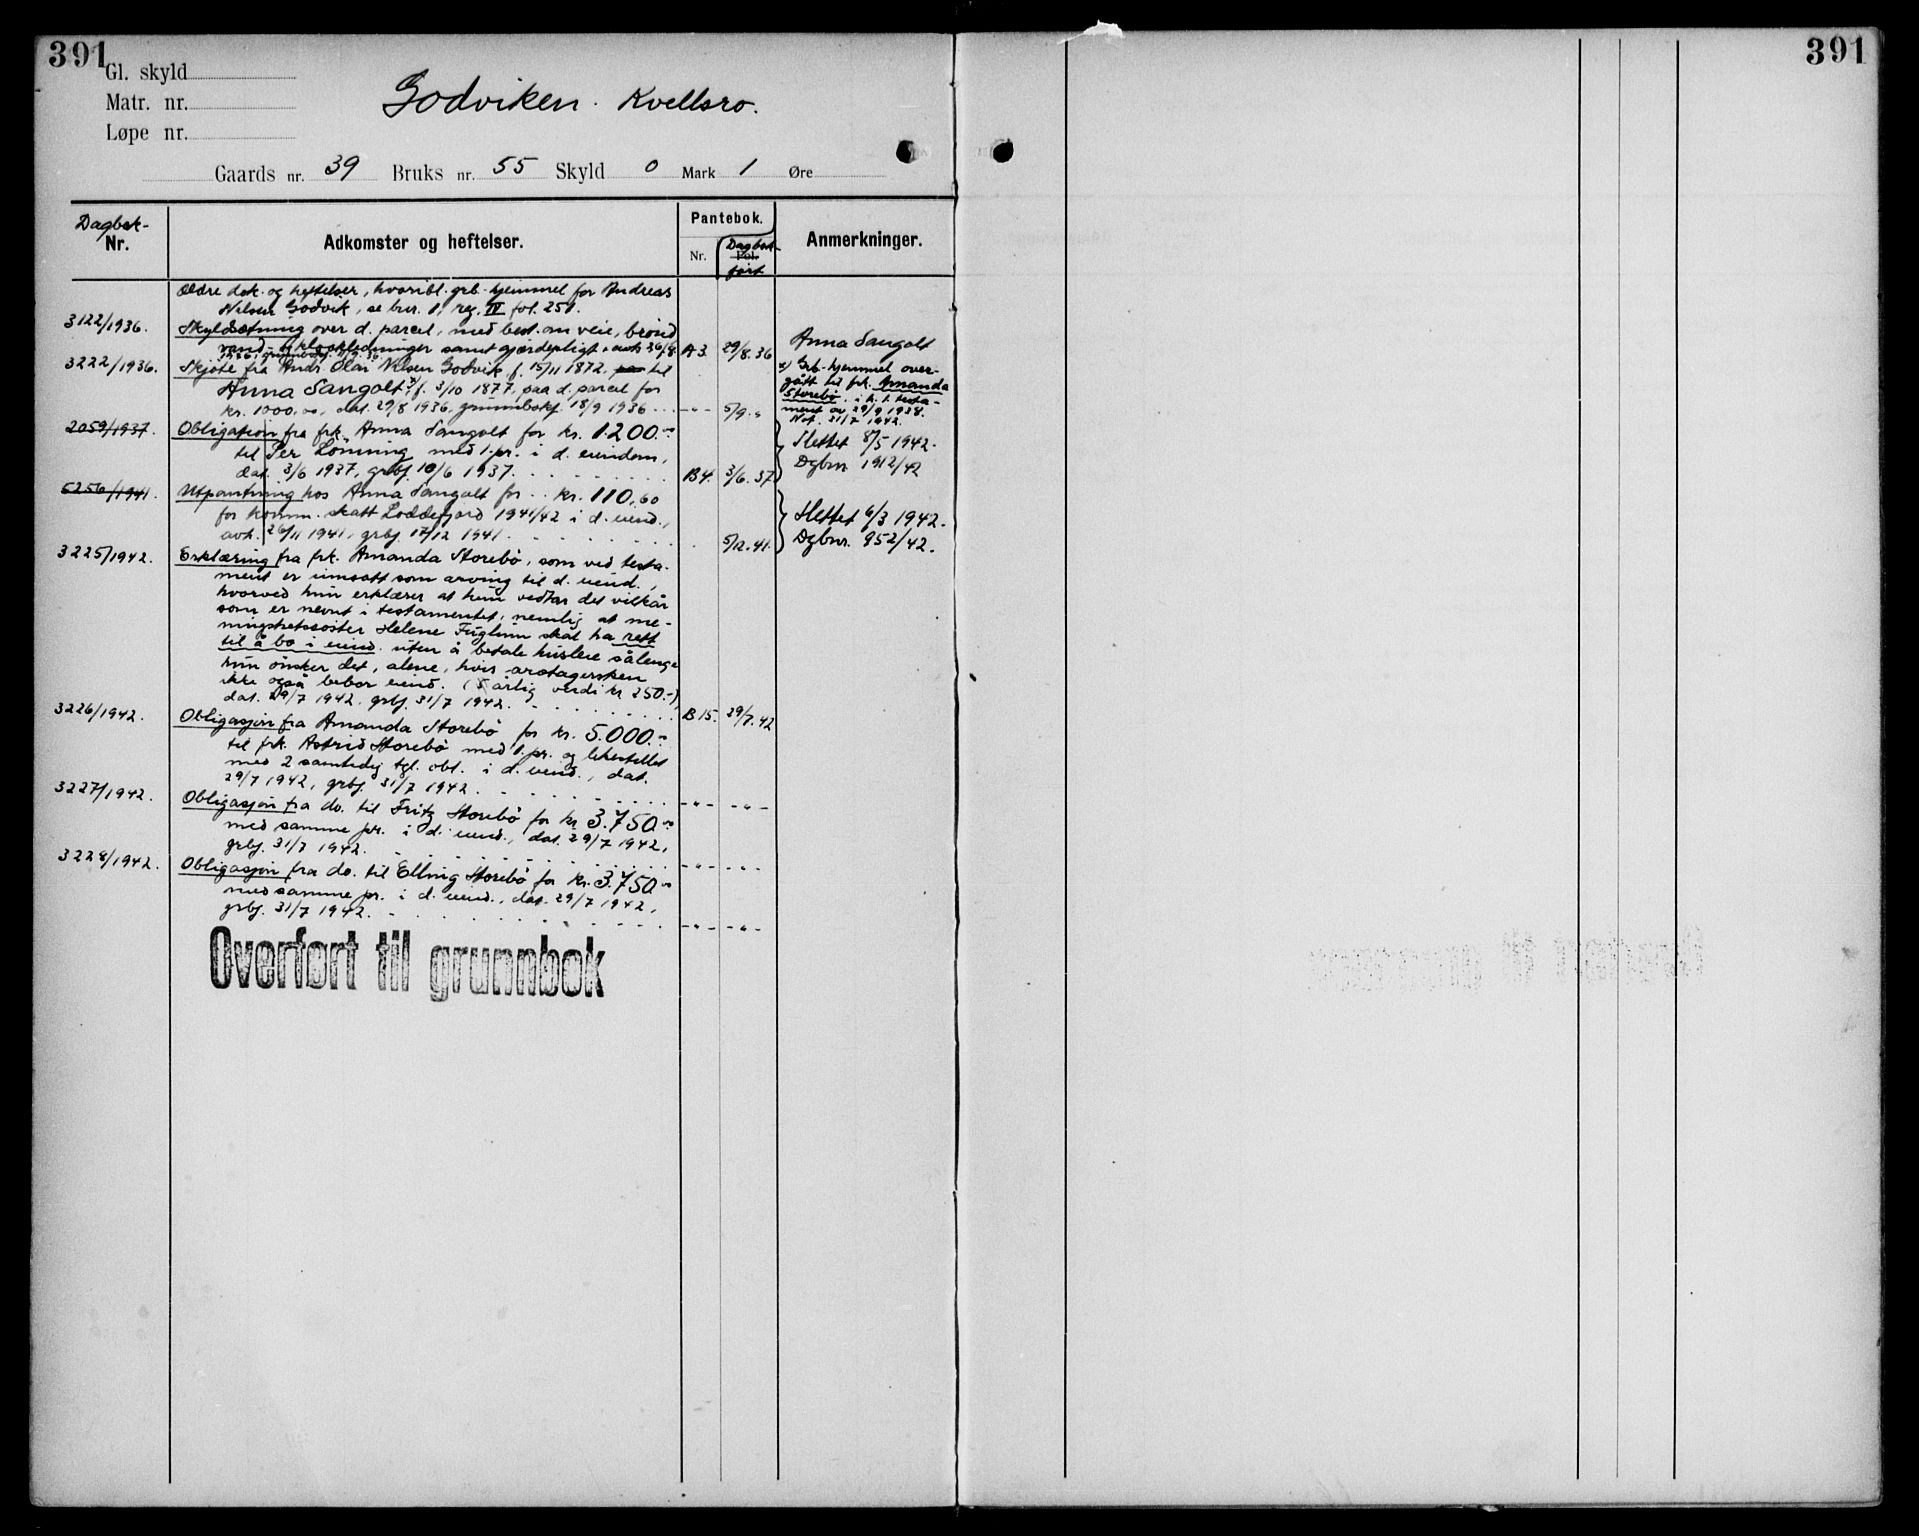 391
391
Gl. skyld
Matr. nr.
Løpe nr.
Godviken. Kvellsro.
Gaards nr. 39 Bruks nr. 55 Skyld 0 Mark 1 Øre
Dagbok-
Nr.
Adkomster og heftelser.
Pantebok.
Nr.
Fol.
Dagbok-
ført
Anmerkninger.
Ældre dok. og heftelser, hvoribl. grb.-hjemmel for Andreas
Nilsen Godvik, se bur. 1, reg. IV fol. 251.
3122/1936. Skyldsætning over d. parcel, med best. om veie, brønd
vand- og kloakledninger samt gjærdepligt, avh. 26/8 A3. 29/8.36
1936, grundbokf. 11/9.36
Anna Sangolt
3222/1936. Skjøte fra Andr. Olai Nilsen Godvik f. 15/11 1872, paa til
Anna Sangolt x) f. 3/10 1877, paa d. parcel for
kr. 1000,00, dat. 29/8 1936, grundbokf. 18/9 1936 - " - 5/9. "
x) Grb.-hjemmel over-
gått til frk. Amanda
Storebø, i h. t. testa-
ment av 29/9 1938.
Not. 31/7 1942.
2059/1937. Obligation fra frk. Anna Sangolt for kr. 1.200.-
til Per Lønning med 1. pr. i d. eiendom,
dat. 3/6 1937, grbf. 10/6 1937. B4. 3/6. 37
Slettet 8/5 1942.
Dgbnr. 1912/42
5256/1941. Utpantning hos Anna Sangolt for kr. 110,60
for komm. skatt Loddefjord 1941/42 i d. eiend.,
avh. 26/11 1941, grbf. 17/12 1941. 5/12.41.
Slettet 6/3 1942.
Dgbnr. 952/42.
3225/1942. Erklæring fra frk. Amanda Storebø, som ved testa-
ment er innsatt som arving til d. eiend.,
hvorved hun erklærer at hun vedtar det vilkår
som er nevnt i testamentet, nemlig at me-
nighetssøster Helene Fuglum skal ha rett
til å bo i eiend. uten å betale husleie sålenge
hun ønsker det, alene, hvis arvtagersken
ikke også bebor eiend. (5 årlig verdi kr 250.-),
dat. 29/7 1942, grbf. 31/7 1942. B15. 29/7.42
3226/1942. Obligasjon fra Amanda Storebø for kr. 5.000.-
til frk. Astrid Storebø med 1. pr. og likestillet
med 2 samtidig tgl. obl. i d. eiend., dat.
29/7 1942, grbf. 31/7 1942. - " - - " -
3227/1942. Obligasjon fra do. til Fritz Storebø for kr 3.750.-
med samme pr. i d. eiend., dat. 29/7 1942,
grbf. 31/7 1942. - " - - " -
3228/1942. Obligasjon fra do. til Elling Storebø for kr. 3.750.-
med samme pr. i d. eiend., dat. 29/7 1942,
grbf. 31/7 1942. - " - - " -
Overført til grunnbok